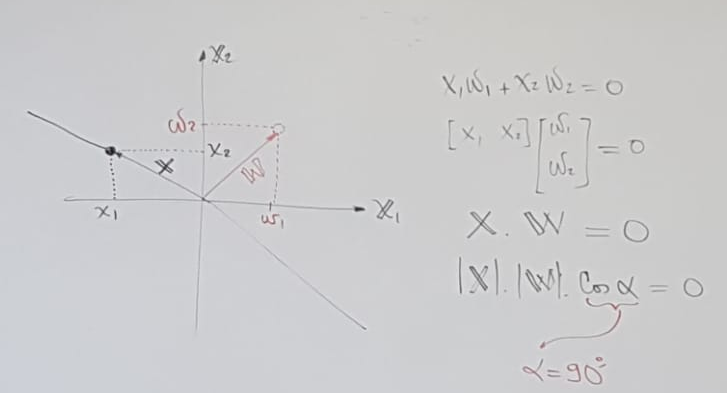 X₂
ω₂
x₂
X
W
x₁
ω₁
X₁
x₁ω₁ + x₂ω₂ = 0
[x₁ x₂] [ω₁
ω₂] = 0
X . W = 0
|X| . |W| . Cos α = 0
α = 90°